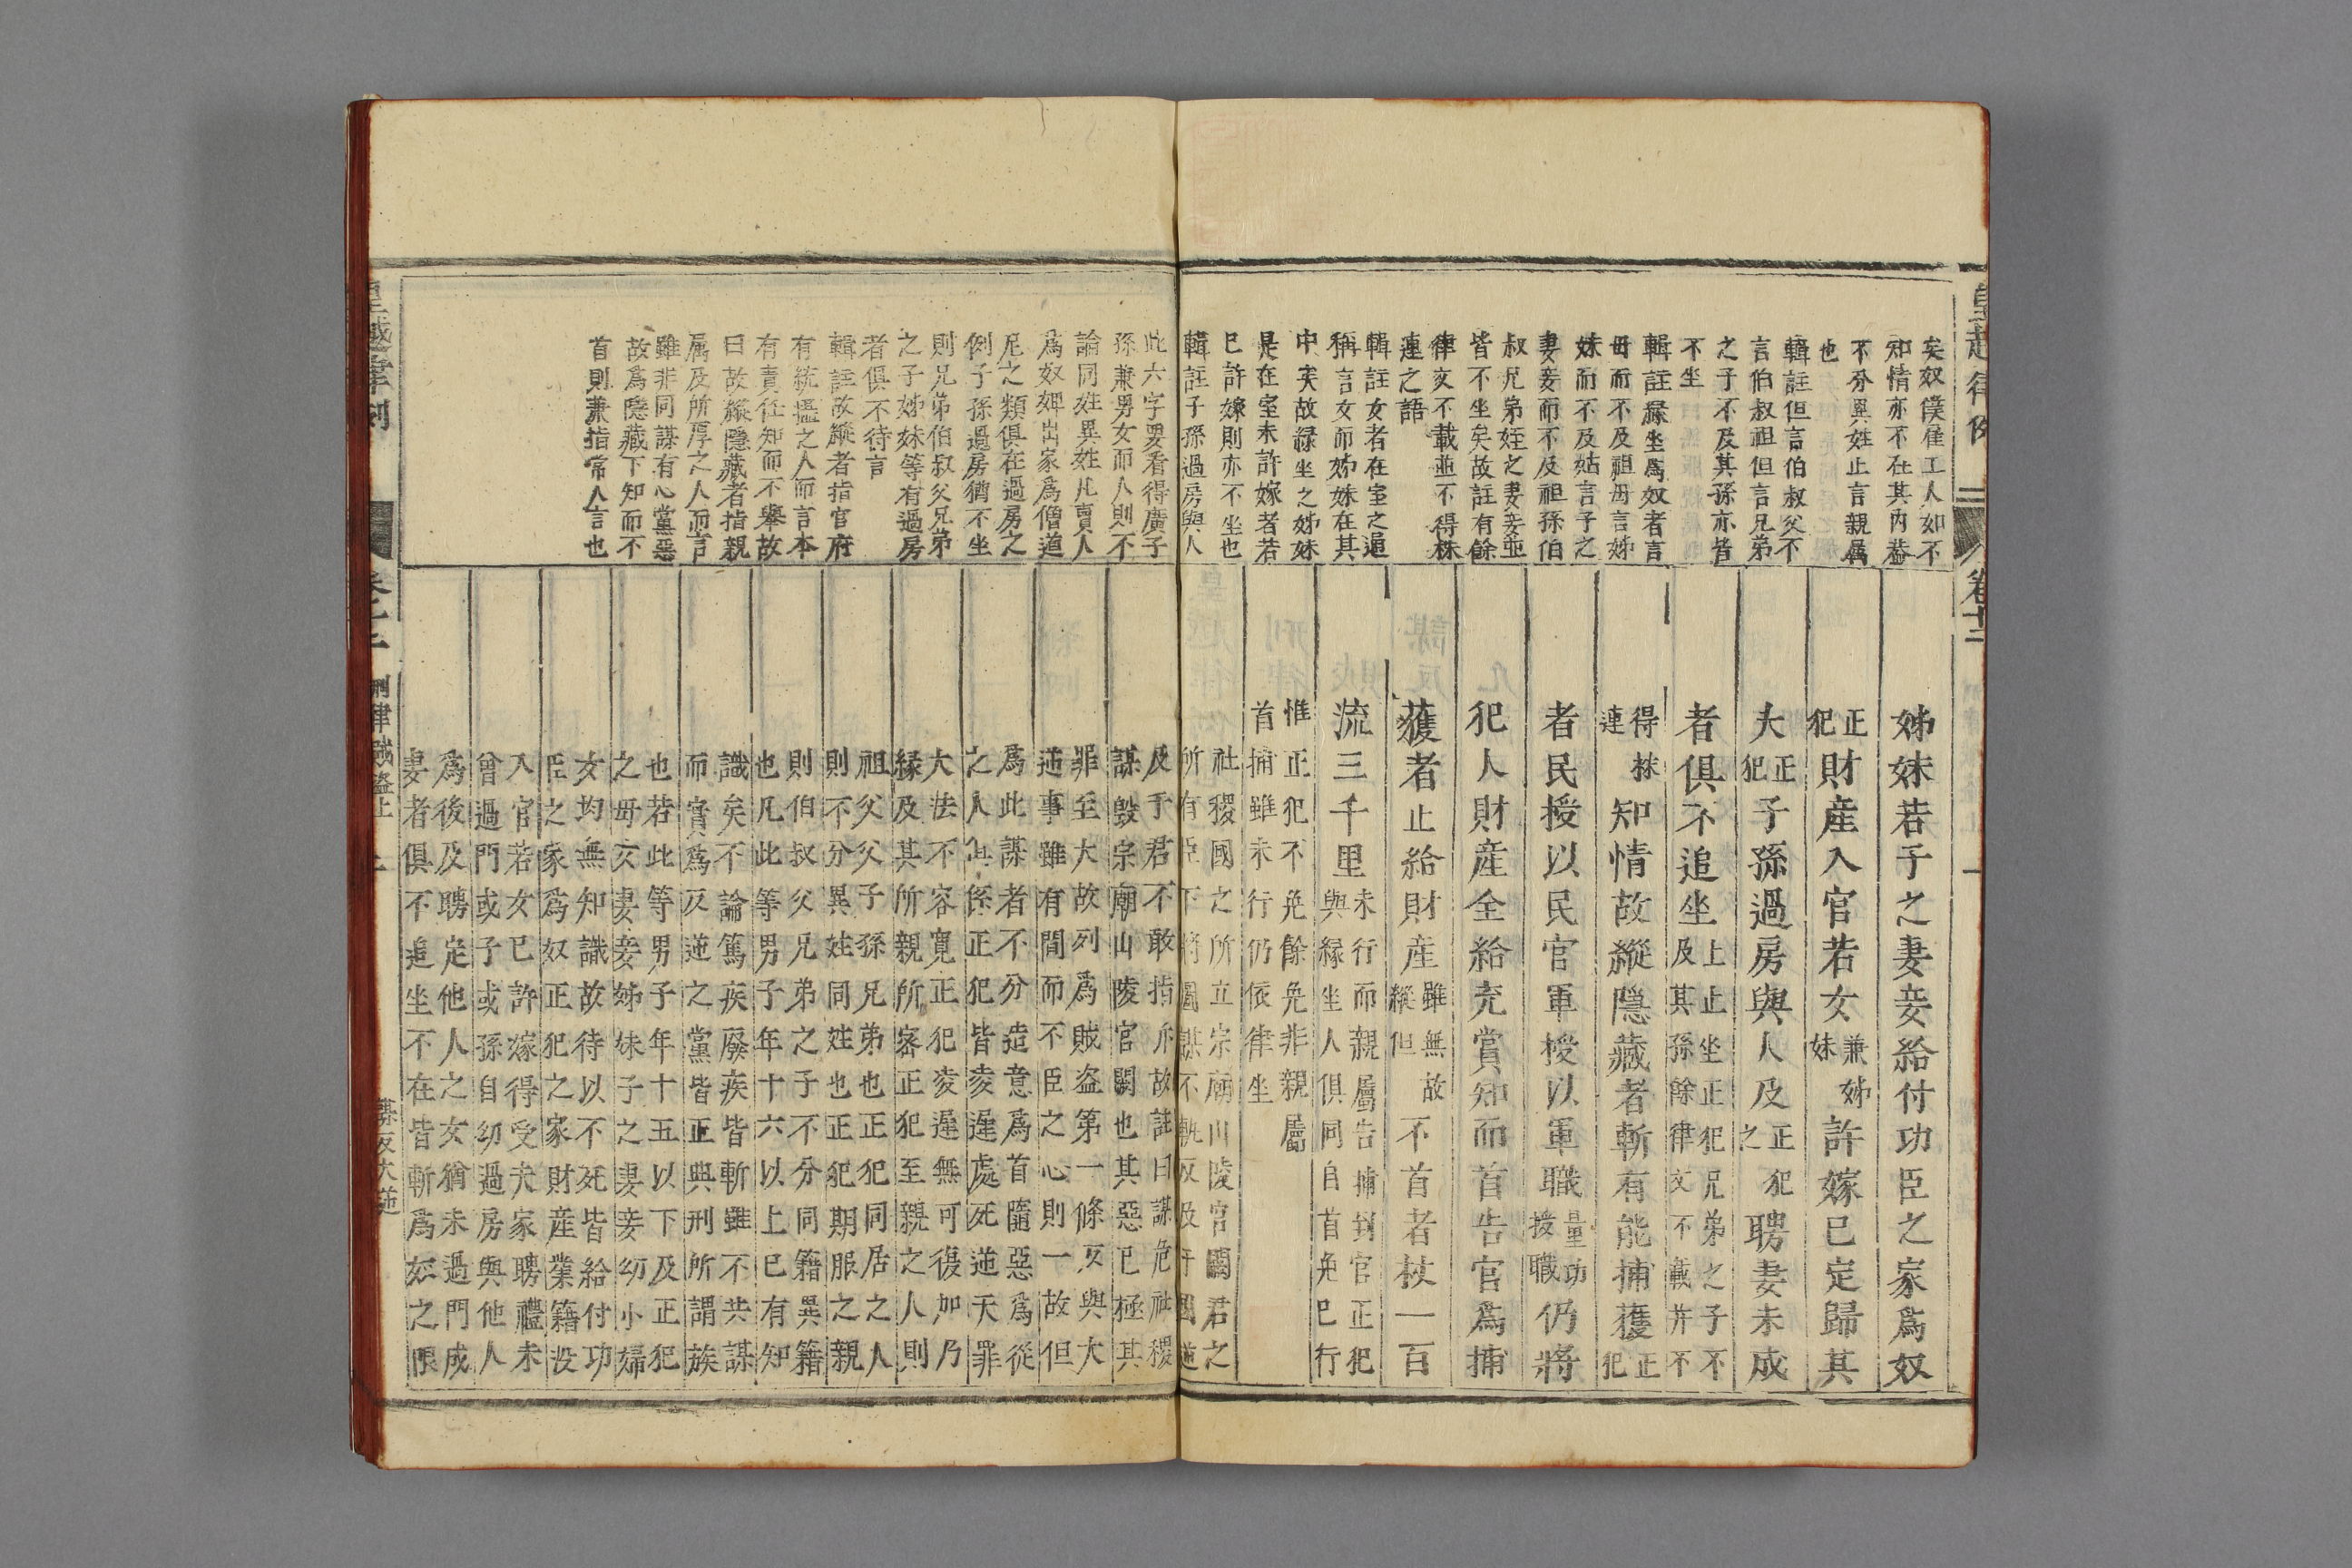 皇越律例
卷十二
矣奴僕雇工人如不
知情亦不在其内葢
不分異姓止言親属
也
輯註但言伯叔父不
言伯叔祖但言兄弟
之子不及其孫亦皆
不坐
輯註縁坐爲奴者言
毋而不及祖毋言姊
妹而不及姑言子之
妻妾而不及祖孫伯
叔兄弟姪之妻妾並
皆不坐矣故註有餘
律文不載並不得株
連之語
輯註女者在室之通
稱言女而姊妹在其
中矣故緑坐之姊妹
是在室未許嫁者若
巳許嫁則亦不坐也
輯註子孫過房與人
姊妹若子之妻妾給付功臣之家爲奴
正犯財産入官若女兼姊妹許嫁已定歸其
夫正犯子孫過房與人及正犯之聘妻未成
者俱不追坐上止坐正犯兄弟之子不及其孫餘律文不載并不
得株連知情故縱隱藏者斬有能捕獲正犯
者民授以民官軍授以軍職量功授職仍將
犯人財産全給充賞知而首告官爲捕
獲者止給財産雖無故縱但不首者杖一百
流三千里未行而親屬告捕到官正犯與縁坐人俱同自首免巳行
惟正犯不免餘免非親屬首捕雖未行仍依律坐
社稷國之所立宗廟山陵宮闕君之
所有臣下將圖謀不軌反及于國逆
此六字要看得廣子
孫兼男女而人則不
論同姓異姓凡賣人
爲奴婢出家爲僧道
尼之類俱在過房之
例子孫過房猶不坐
則兄弟伯叔父兄弟
之子姊妹等有過房
者俱不待言
輯註故縱者指官府
有統攝之人而言本
有責任知而不舉故
曰故縱隱藏者指親
属及所厚之人而言
雖非同謀有心黨惡
故爲隱藏下知而不
首則兼指常人言也
及于君不敢指斥故註曰謀危社稷
謀毀宗廟山陵官闕也其惡已極其
罪至大故列爲賊盗第一條反與大
逆事雖有間而不臣之心則一故但
爲此謀者不分造意爲首隨惡爲從
之人但係正犯皆凌遲處死逆天罪
大法不容寬正犯凌遲無可復加乃
縁及其所親所密正犯至親之人則
祖父父子孫兄弟也正犯同居之人
則不分異姓同姓也正犯期服之親
則伯叔父兄弟之子不分同籍異籍
也凡此等男子年十六以上已有知
識矣不論篤疾廢疾皆斬雖不共謀
而實爲反逆之黨皆正典刑所謂族
也若此等男子年十五以下及正犯
之毋女妻妾姊妹子之妻妾幼小婦
女均無知識故待以不死皆給付功
臣之家爲奴正犯之家財産業籍没
入官若女已許嫁得受夫家聘禮未
曾過門或子或孫自幼過房與他人
爲後及聘定他人之女猶未過門成
妻者俱不追坐不在皆斬爲奴之限
皇越律例
刑律賊盗上
謀反大逆